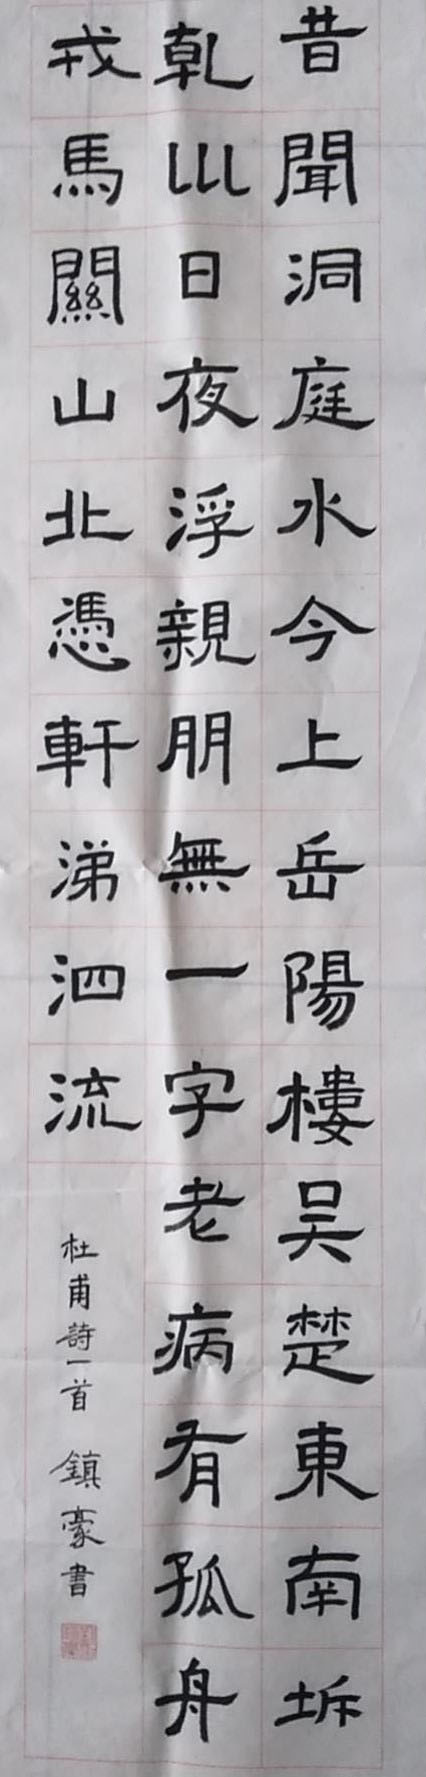 昔聞洞庭水今上岳陽樓吴楚東南坼
乹巛日夜浮親朋無一字老病有孤舟
戎馬關山北憑軒涕泗流
杜甫詩一首 鎮豪書